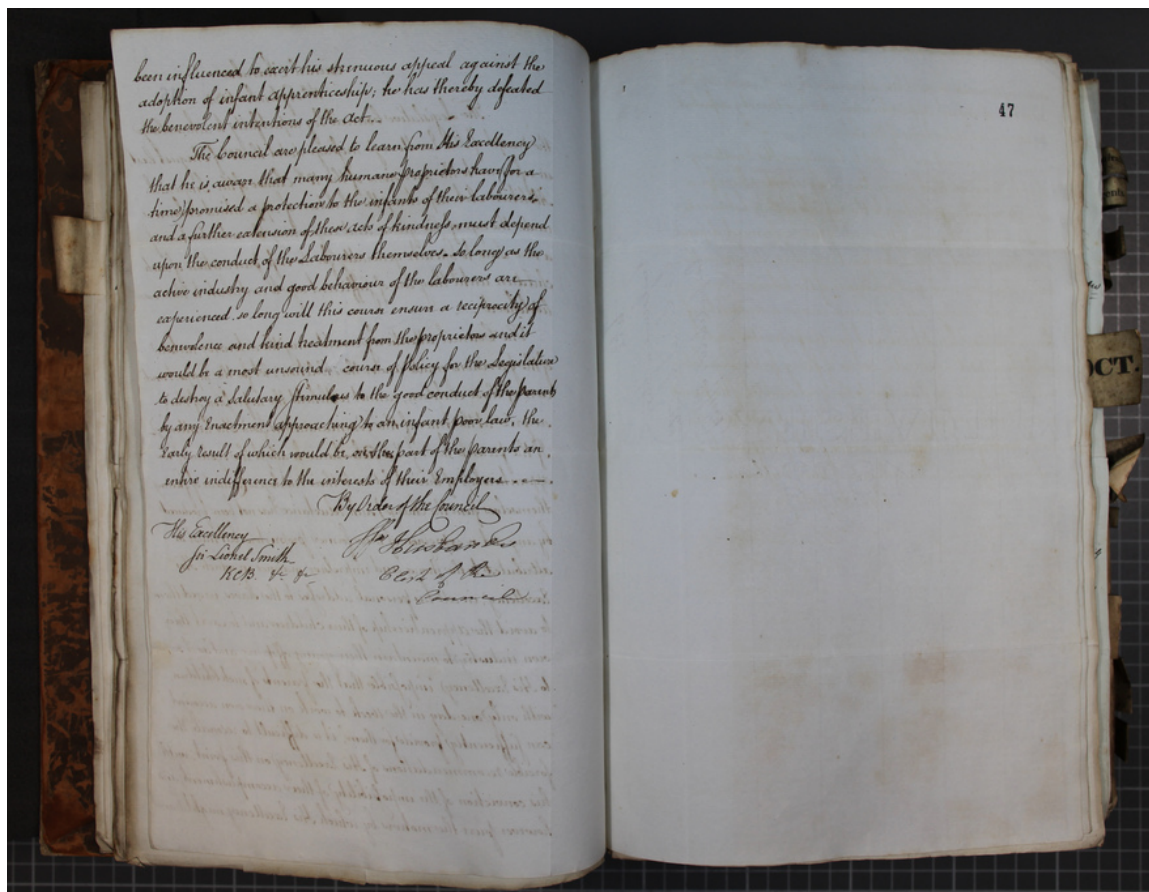 been influenced to exert his strenuous appeal against the
adoption of infant apprenticeship; he has thereby defeated
the benevolent intentions of the Act..
The Council are pleased to learn from His Excellency
that he is aware that many humane proprietors have (for a
time) promised a protection to the infants of their labourers,
and a further extension of these acts of kindness must depend
upon the conduct of the Labourers themselves. so long as the
active industry and good behaviour of the labourers are
experienced. so long will this course ensure a reciprocity of
benevolence and kind treatment from the proprietors and it
would be a most unsound course of Policy for the Legislature
to destroy a Salutary Stimulus to the good conduct of the Parents
by any Enactment approaching to an infant poor law, the
Early result of which would be, on the part of the parents an
entire indifference to the interests of their Employers
By Order of the Council
His Excellency
Sir Lionel Smith
KCB. &c &c
Husbands
Clerk of the
Council
47
OCT.